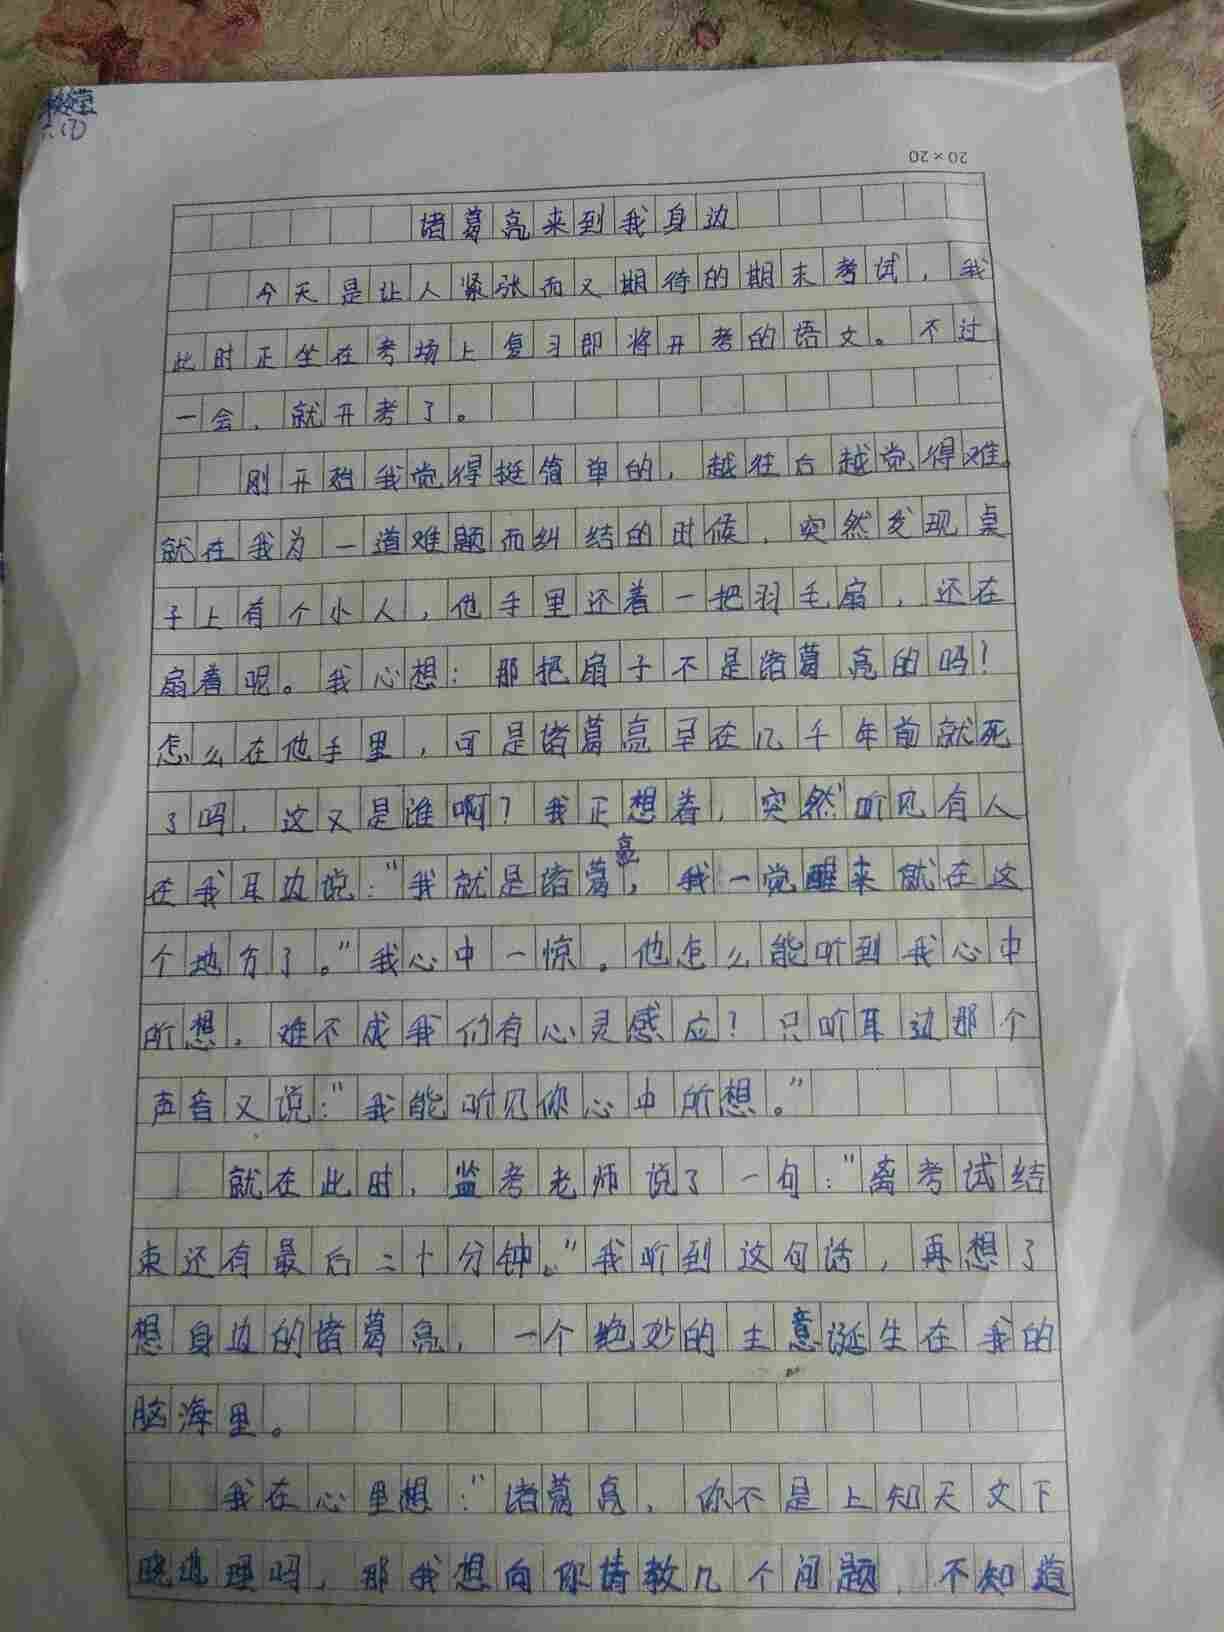 六(7)
20×20
诸葛亮来到我身边
今天是让人紧张而又期待的期末考试，我
此时正坐在考场上复习即将开考的语文。不过
一会，就开考了。
刚开始我觉得挺简单的，越往后越觉得难。
就在我为一道难题而纠结的时候，突然发现桌
子上有个小人，他手里还着一把羽毛扇，还在
扇着呢。我心想：那把扇子不是诸葛亮的吗！
怎么在他手里，可是诸葛亮早在几千年前就死
了吗，这又是谁啊？我正想着，突然听见有人
在我耳边说：“我就是诸葛亮，我一觉醒来就在这
个地方了。”我心中一惊。他怎么能听到我心中
所想。难不成我们有心灵感应？只听耳边那个
声音又说：“我能听见你心中所想。”
就在此时，监考老师说了一句：“离考试结
束还有最后二十分钟。”我听到这句话，再想了
想身边的诸葛亮，一个绝妙的主意诞生在我的
脑海里。
我在心里想：“诸葛亮，你不是上知天文下
晓地理吗，那我想向你请教几个问题，不知道